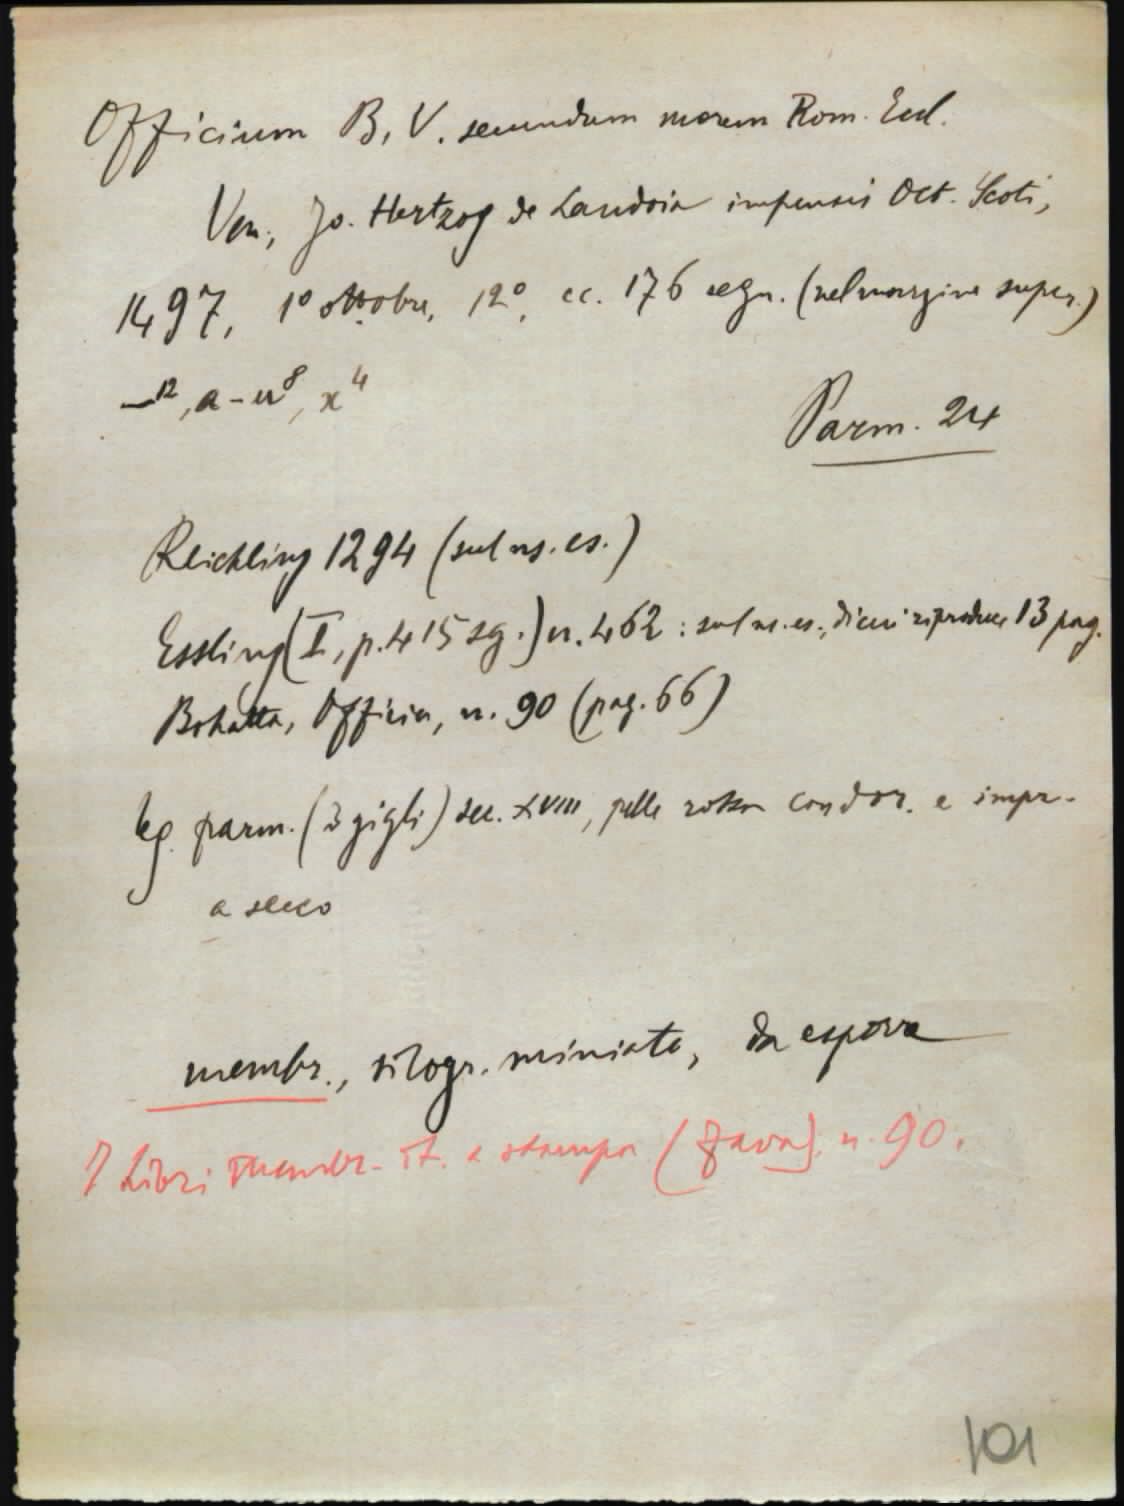 Officium B. V. secundum morem Rom. Eccl.
Ven., Jo. Hertzog de Landoia impensis Oct. Scoti,
1497, 1º ottobre, 12º, cc. 176 segn. (nel margine super.)
—12, a-u8, x4
Parm. 24
Reichling 1294 (sul ns. es.)
Essling (I, p. 415 sg.) n. 462: sul ns. es., di cui riproduce 13 pag.
Bohatta, Officia, n. 90 (pag. 66)
leg. parm. (3 gigli) sec. XVIII, pelle rossa con dor. e impr.
a secco
membr., silogr. miniate, da esporre
Libri membr. it. a stampa (Fava), n. 90.
101